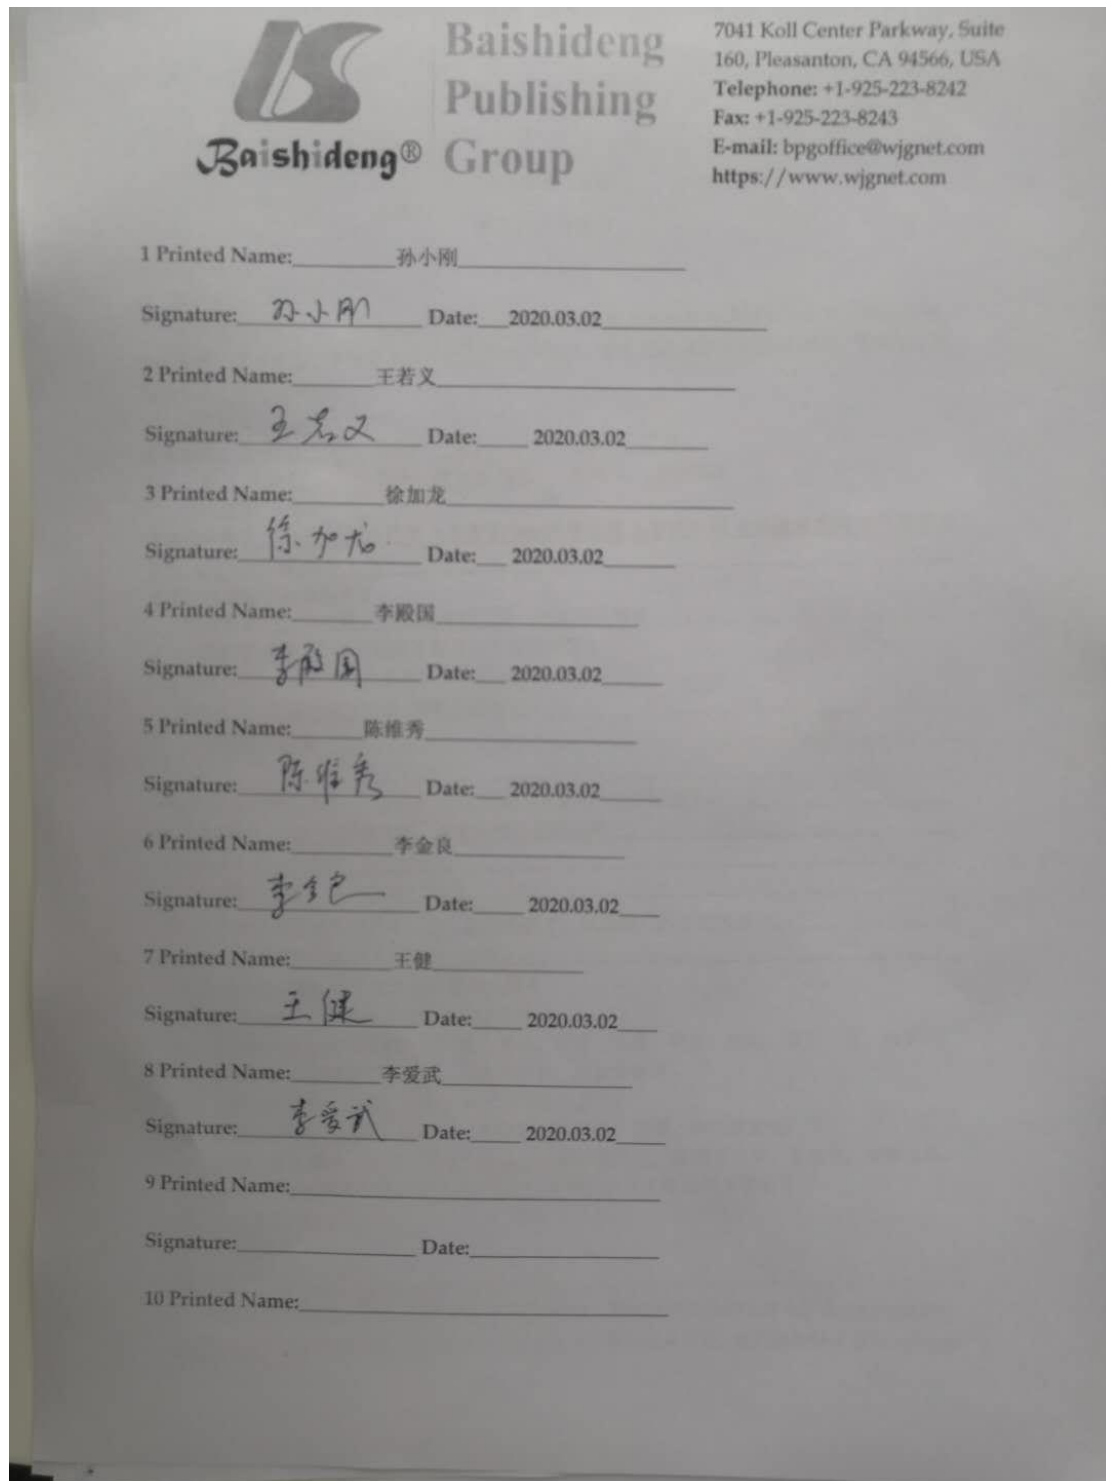 Baishideng
Publishing
Group
Baishideng®
7041 Koll Center Parkway, Suite
160, Pleasanton, CA 94566, USA
Telephone: +1-925-223-8242
Fax: +1-925-223-8243
E-mail: bpgoffice@wjgnet.com
https://www.wjgnet.com
1 Printed Name:_________孙小刚____________________
Signature: 孙小刚 Date:___2020.03.02______________
2 Printed Name:_______王若义__________________________
Signature: 王若义 Date:_____ 2020.03.02_______
3 Printed Name:________徐加龙_________________________
Signature: 徐加龙 Date:___ 2020.03.02______
4 Printed Name:_______李殿国__________________
Signature: 李殿国 Date:___ 2020.03.02______
5 Printed Name:______陈维秀___________________
Signature: 陈维秀 Date:___ 2020.03.02______
6 Printed Name:_________李金良_______________
Signature: 李金良 Date:_____ 2020.03.02____
7 Printed Name:_________王健_____________
Signature: 王健 Date:_____ 2020.03.02____
8 Printed Name:________李爱武_________________
Signature: 李爱武 Date:_____ 2020.03.02____
9 Printed Name:_________________________________
Signature:________________ Date:_________________
10 Printed Name:_________________________________